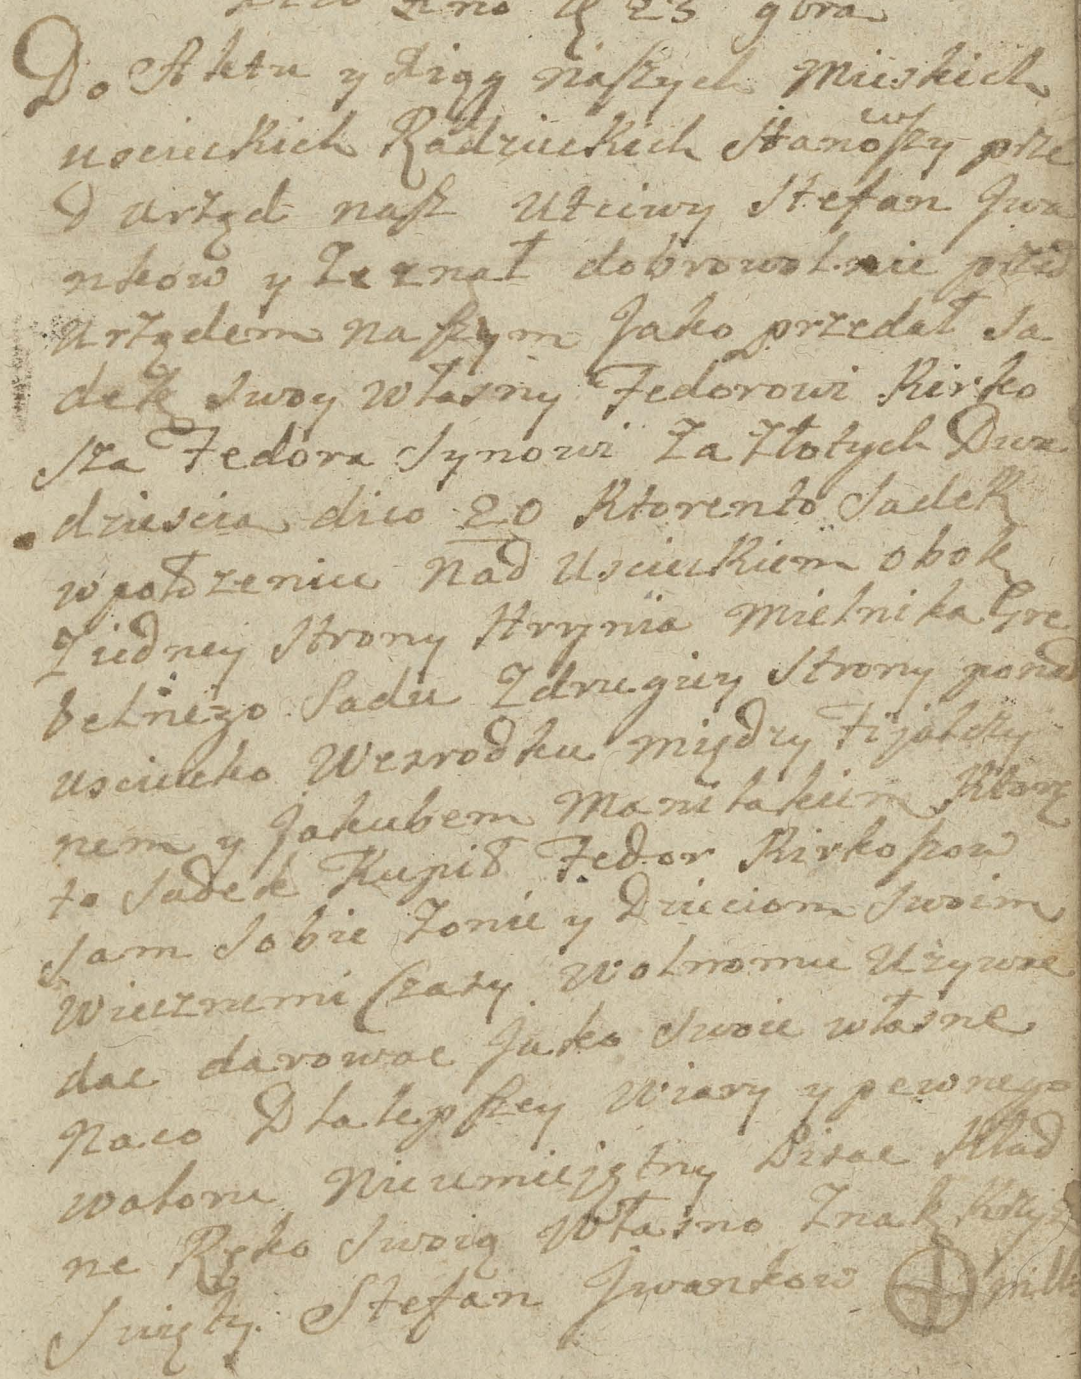 25 9bra
Do Aktu y Xięg naszych Mieskich
uscieckich Radzieckich Stanowszy prze
d urząd nasz Uczciwy Stefan Jwa
nkow y Zeznał dobrowolnie przed
urzędem naszym Jako przedał Sa
dek swoy własny Fedorowi Kirko
sza Fedora Synowi Za Złotych Dwa
dziescia dico 20 Ktorento Sadek
w połozeniu nad Usciekiem obok
Ziedney Strony Hrynia Mielnika Gre
belnego Sadu Zdrugiey Strony ponad
usciecko Wesrodku między Fijałszy
nem y Jakubem Manilakiem Ktory
to Sadek Kupił Fedor Kirkoszow
sam Sobie Zonie y Dzieciom Swoim
Wiecznemi Czasy wolnomu Uzywac
dac darowac Jako Swoie własne
Naco Dla lepszey Wiary y pewnego
waloru Nieumiejętny Pisac Klad
ne Ręko Swoią Własno Znak Krzyz
Swięty. Stefan Jwankow